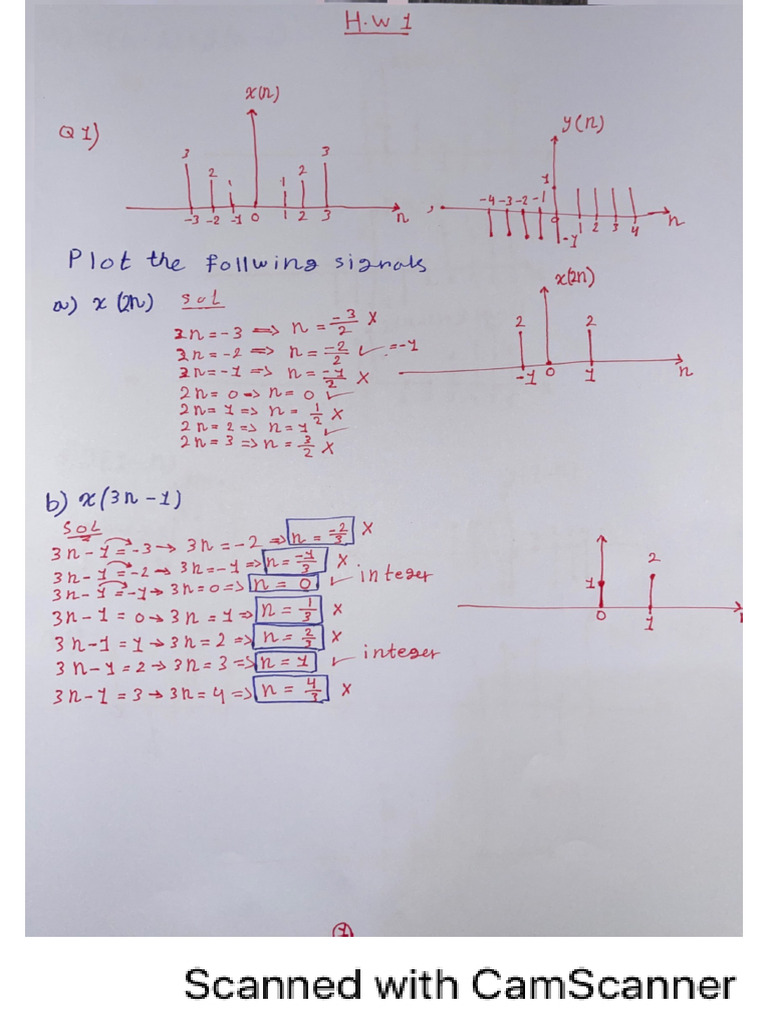 H.W 1
Q1)
x(n)
3 2 1 1 2 3
-3 -2 -1 0 1 2 3 n
,
y(n)
1
-4 -3 -2 -1 0 1 2 3 4 n
-1
Plot the follwing signals
a) x(2n) sol
2n = -3 => n = -3/2 X
2n = -2 => n = -2/2 ✓ = -1
2n = -1 => n = -1/2 X
2n = 0 => n = 0 ✓
2n = 1 => n = 1/2 X
2n = 2 => n = 1 ✓
2n = 3 => n = 3/2 X
x(2n)
2 2
-1 0 1 n
b) x(3n - 1)
SOL
3n - 1 = -3 → 3n = -2 => n = -2/3 X
3n - 1 = -2 → 3n = -1 => n = -1/3 X
3n - 1 = -1 → 3n = 0 => n = 0 ✓ integer
3n - 1 = 0 → 3n = 1 => n = 1/3 X
3n - 1 = 1 → 3n = 2 => n = 2/3 X
3n - 1 = 2 → 3n = 3 => n = 1 ✓ integer
3n - 1 = 3 → 3n = 4 => n = 4/3 X
1 2
0 1
1
Scanned with CamScanner